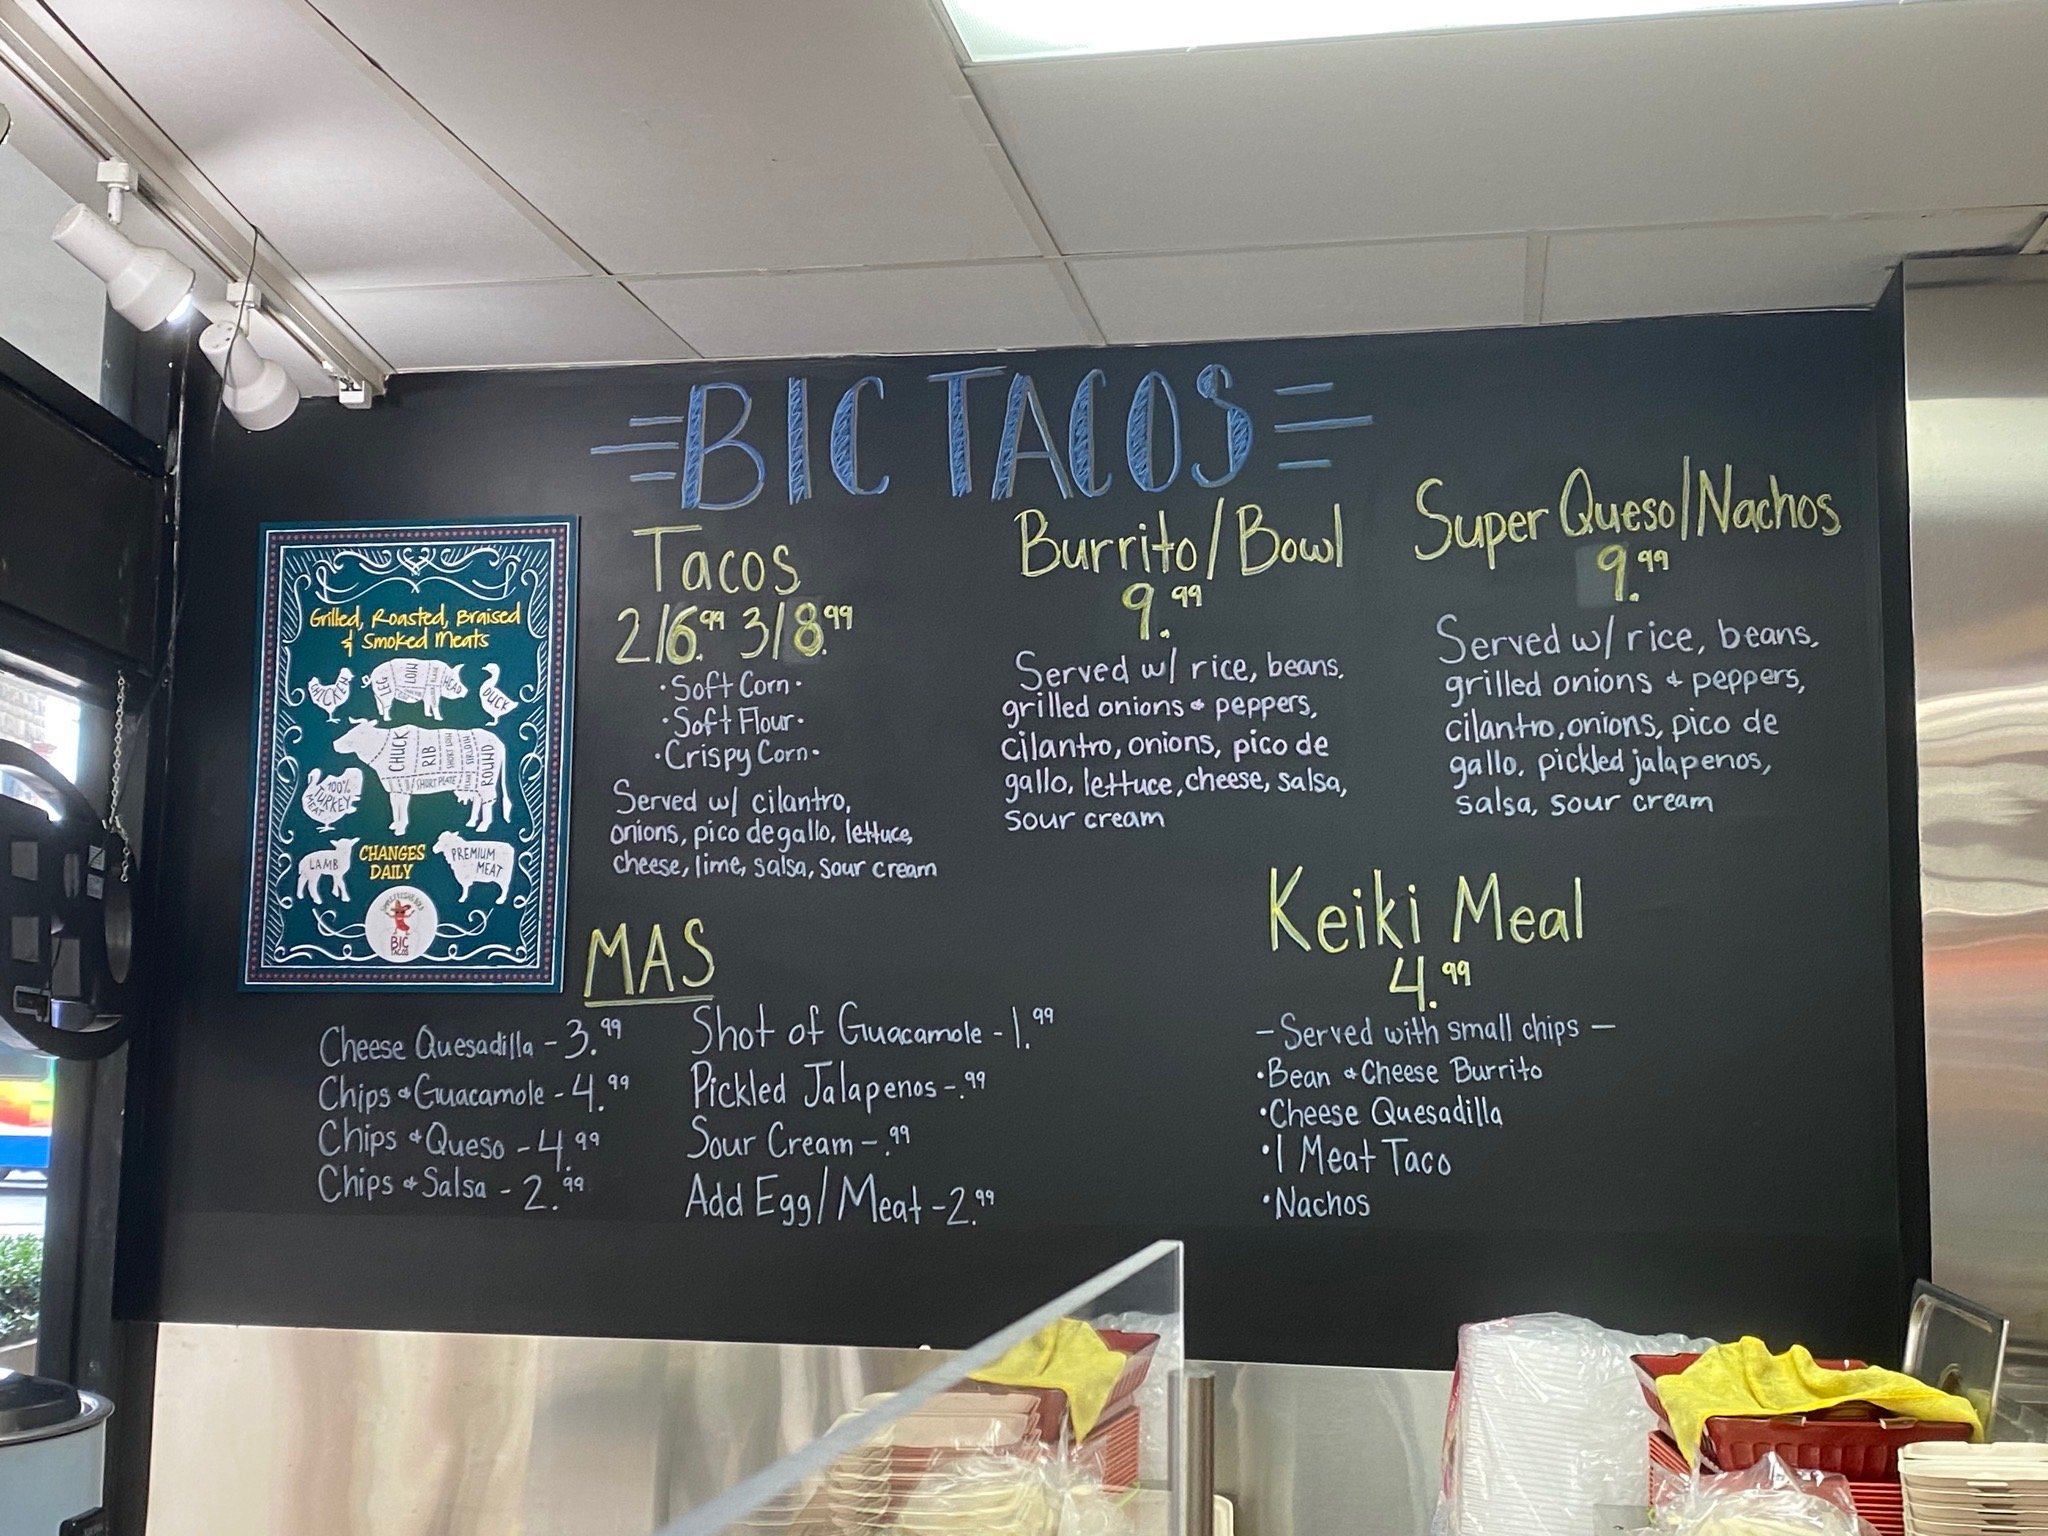 BIC TACOS
Grilled, Roasted, Braised
& Smoked Meats
CHICKEN
LEG
LOIN
HEAD
DUCK
CHUCK
RIB
SHORT LOIN
SIRLOIN
ROUND
SHORT PLATE
100%
TURKEY
MEAT
LAMB
CHANGES
DAILY
PREMIUM
MEAT
BIC
TACOS
Tacos
2/6.99 3/8.99
·Soft Corn·
·Soft Flour·
·Crispy Corn·
Served w/ cilantro,
onions, pico de gallo, lettuce,
cheese, lime, salsa, sour cream
Burrito/Bowl
9.99
Served w/ rice, beans,
grilled onions & peppers,
cilantro, onions, pico de
gallo, lettuce, cheese, salsa,
sour cream
Super Queso/Nachos
9.99
Served w/ rice, beans,
grilled onions & peppers,
cilantro, onions, pico de
gallo, pickled jalapenos,
salsa, sour cream
MAS
Cheese Quesadilla - 3.99
Chips & Guacamole - 4.99
Chips & Queso - 4.99
Chips & Salsa - 2.99
Shot of Guacamole - 1.99
Pickled Jalapenos - .99
Sour Cream - .99
Add Egg/Meat - 2.99
Keiki Meal
4.99
- Served with small chips -
·Bean & Cheese Burrito
·Cheese Quesadilla
·1 Meat Taco
·Nachos